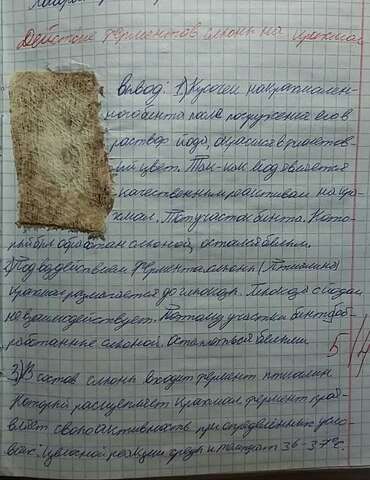 Действие ферментов слюны на крахмал
Вывод: 1) Кусочек накрахмален-
ного бинта после погружения его в
раствор йода, окрасился в фиолетов-
ый цвет. Так-как йод является
качественным реактивом на кра-
хмал. Тот участок бинта. Кото-
рый был обработан слюной, остался белым.
2) Под воздействием фермента слюны (Птиалина)
крахмал разлагается до глюкозы. Глюкоза с йодом
не взаимодействует. Поэтому участки бинта об-
работанные слюной. Остаются белыми.
5/4
3) В состав слюны входит фермент птиалин
Который расщепляет крахмал. фермент проя-
вляет свою активность при определённых усло-
виях: щелочной реакции среды и температ 36-37°C.